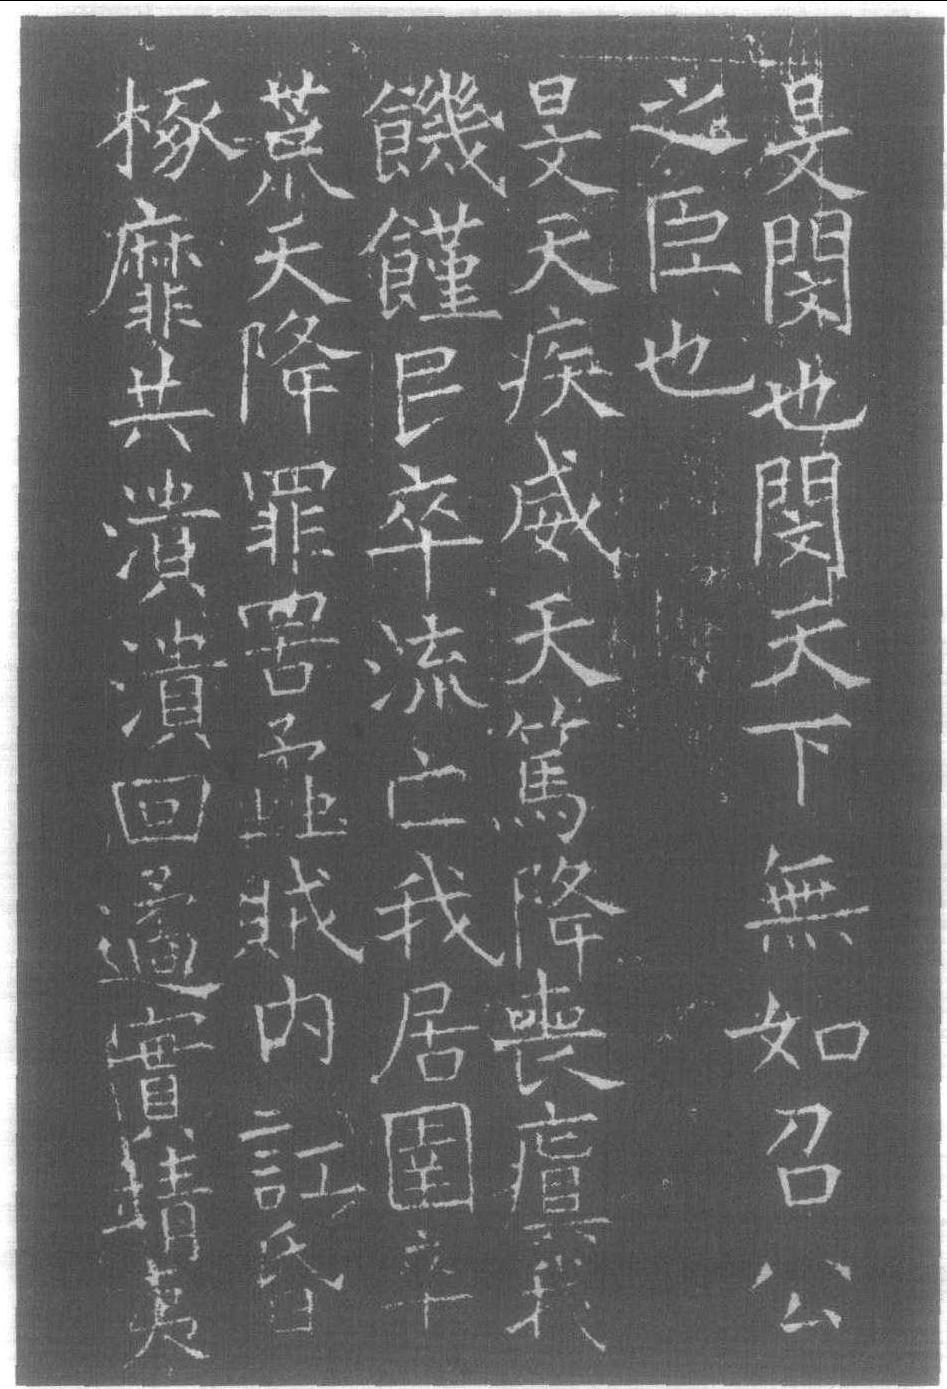 旻閔也閔天下無如召公
之臣也
旻天疾威天篤降喪瘨我
饑饉民卒流亡我居圉卒
荒天降罪罟蟊賊内訌昏
椓靡共潰潰回遹實靖夷